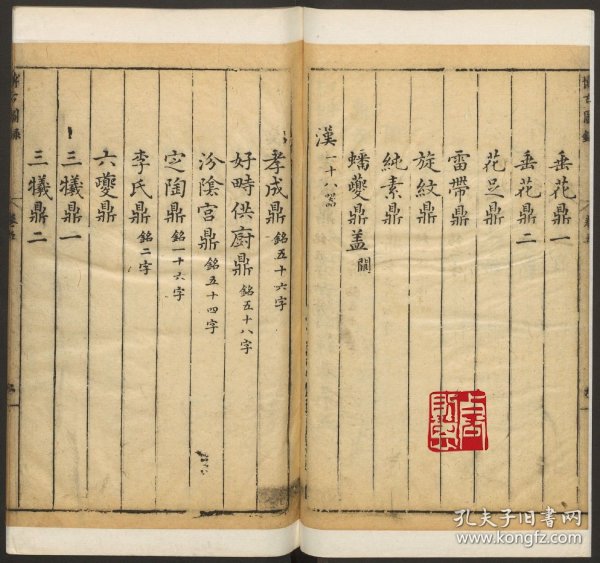 垂花鼎一
垂花鼎二
花足鼎
雷帶鼎
旋紋鼎
純素鼎
蟠夔鼎蓋 闕
漢 一十八器
孝成鼎 銘五十六字
好畤供廚鼎 銘五十八字
汾陰宮鼎 銘五十四字
定陶鼎 銘一十六字
李氏鼎 銘二字
六夔鼎
三犧鼎一
三犧鼎二
孔夫子旧书网
www.kongfz.com